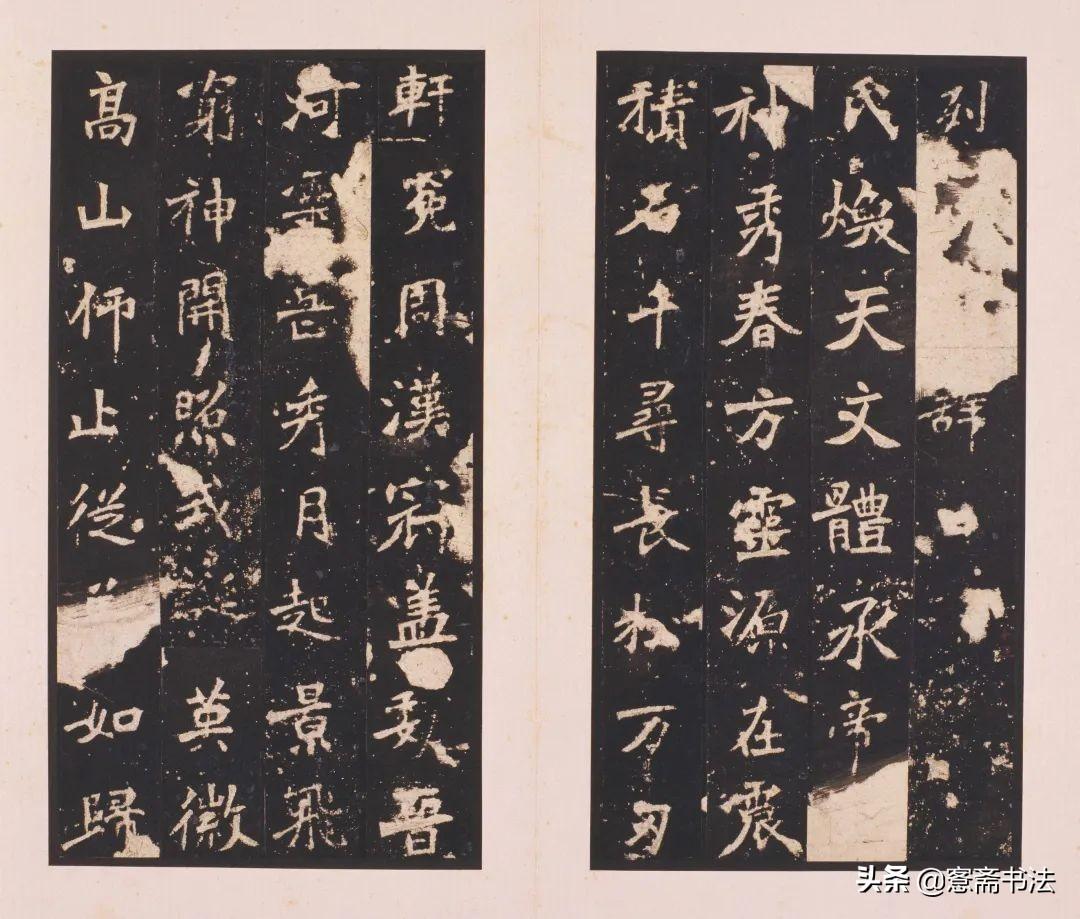 列辞曰
氏煥天文體承帝
神秀春方靈源在震
積石千尋長松万刃
軒冕周漢冠盖魏晉
河靈岳秀月起景飛
窮神開照式誕英徽
高山仰止從如歸
头条 @愙斋书法